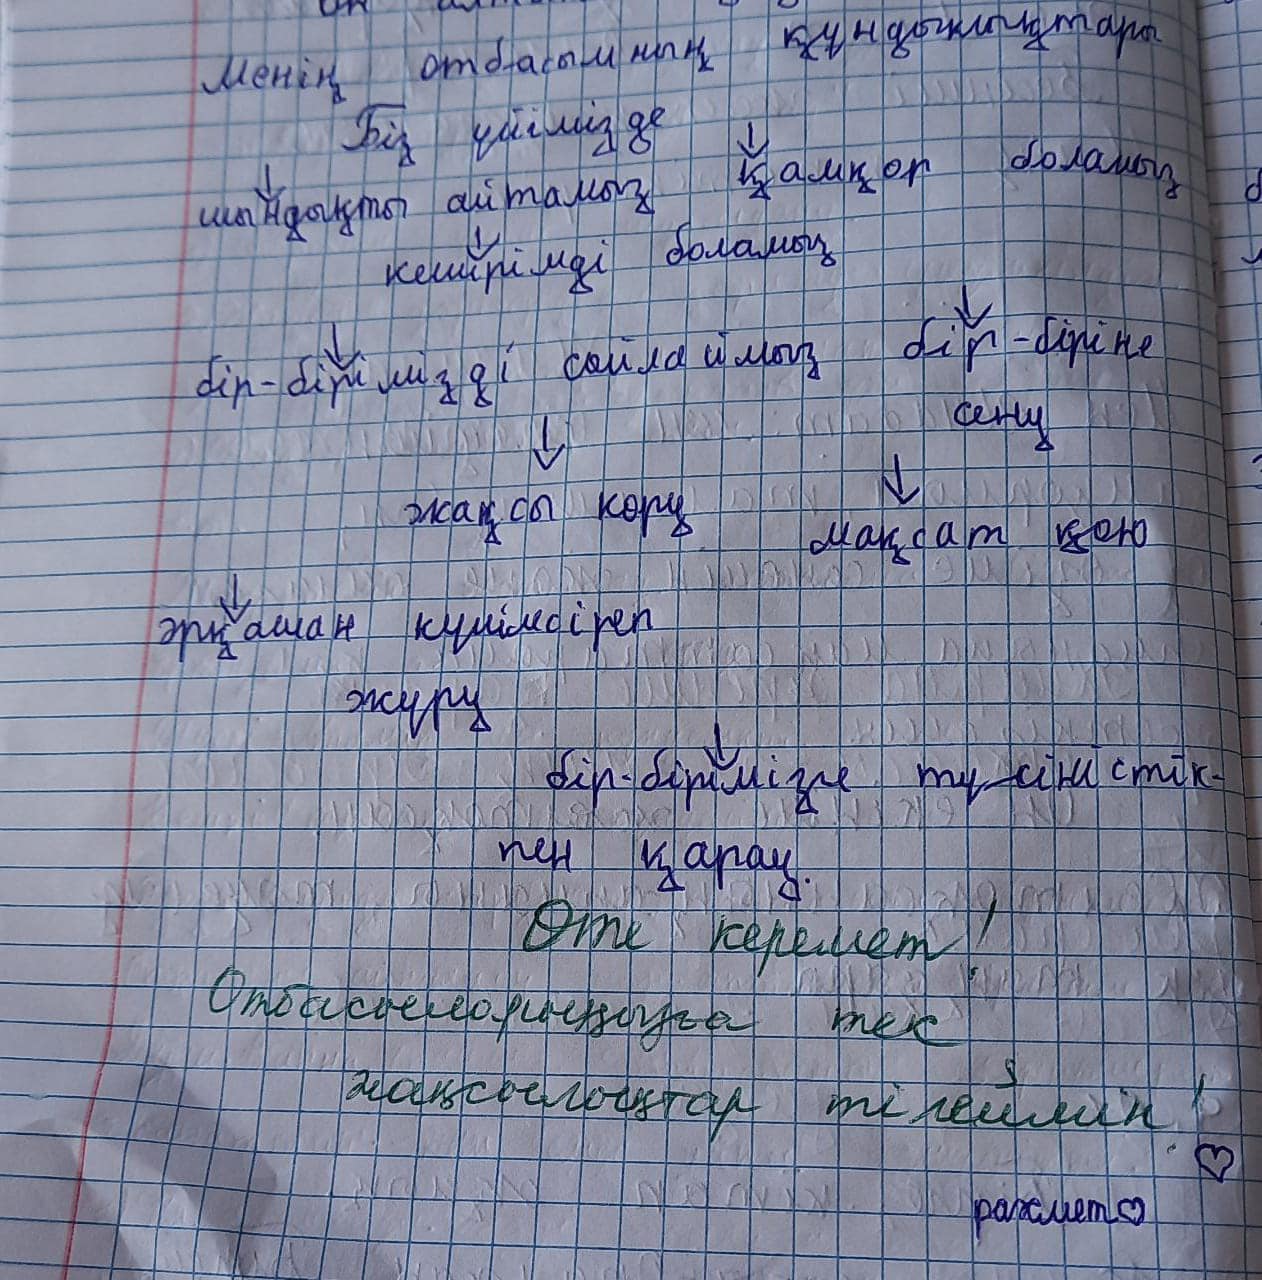 Менің отбасымның құндылықтары
Біз үйімізде
шындықты айтамыз қамқор боламыз
кешірімді боламыз
бір-бірімізді сыйлаймыз бір-біріне
сену
жақсы көру
мақсат қою
әрқашан күлімсіреп
жүру
бір-бірімізге түсіністік-
пен қарау.
Өте керемет!
Отбасыларыңызға тек
жақсылықтар тілеймін!
рахмет